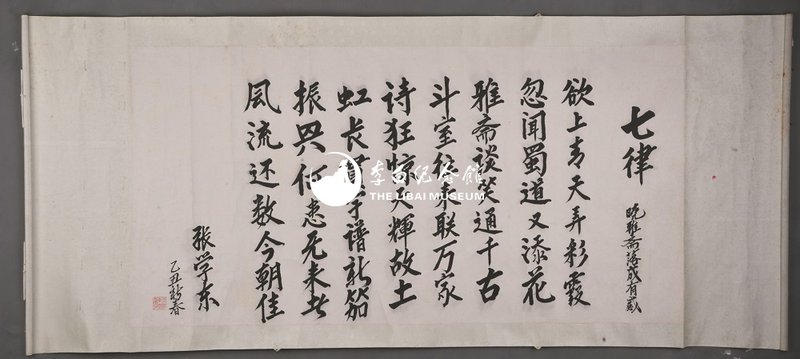 七律
晚雅斋落成有感
欲上青天弄彩霞
忽闻蜀道又添花
雅斋谈笑通千古
斗室往来联万家
诗狂惊天輝故土
虹长谱新笳
振兴何患无来者
风流还数今朝佳
张学东
乙丑新春
李白纪念馆
THE LIBAI MUSEUM